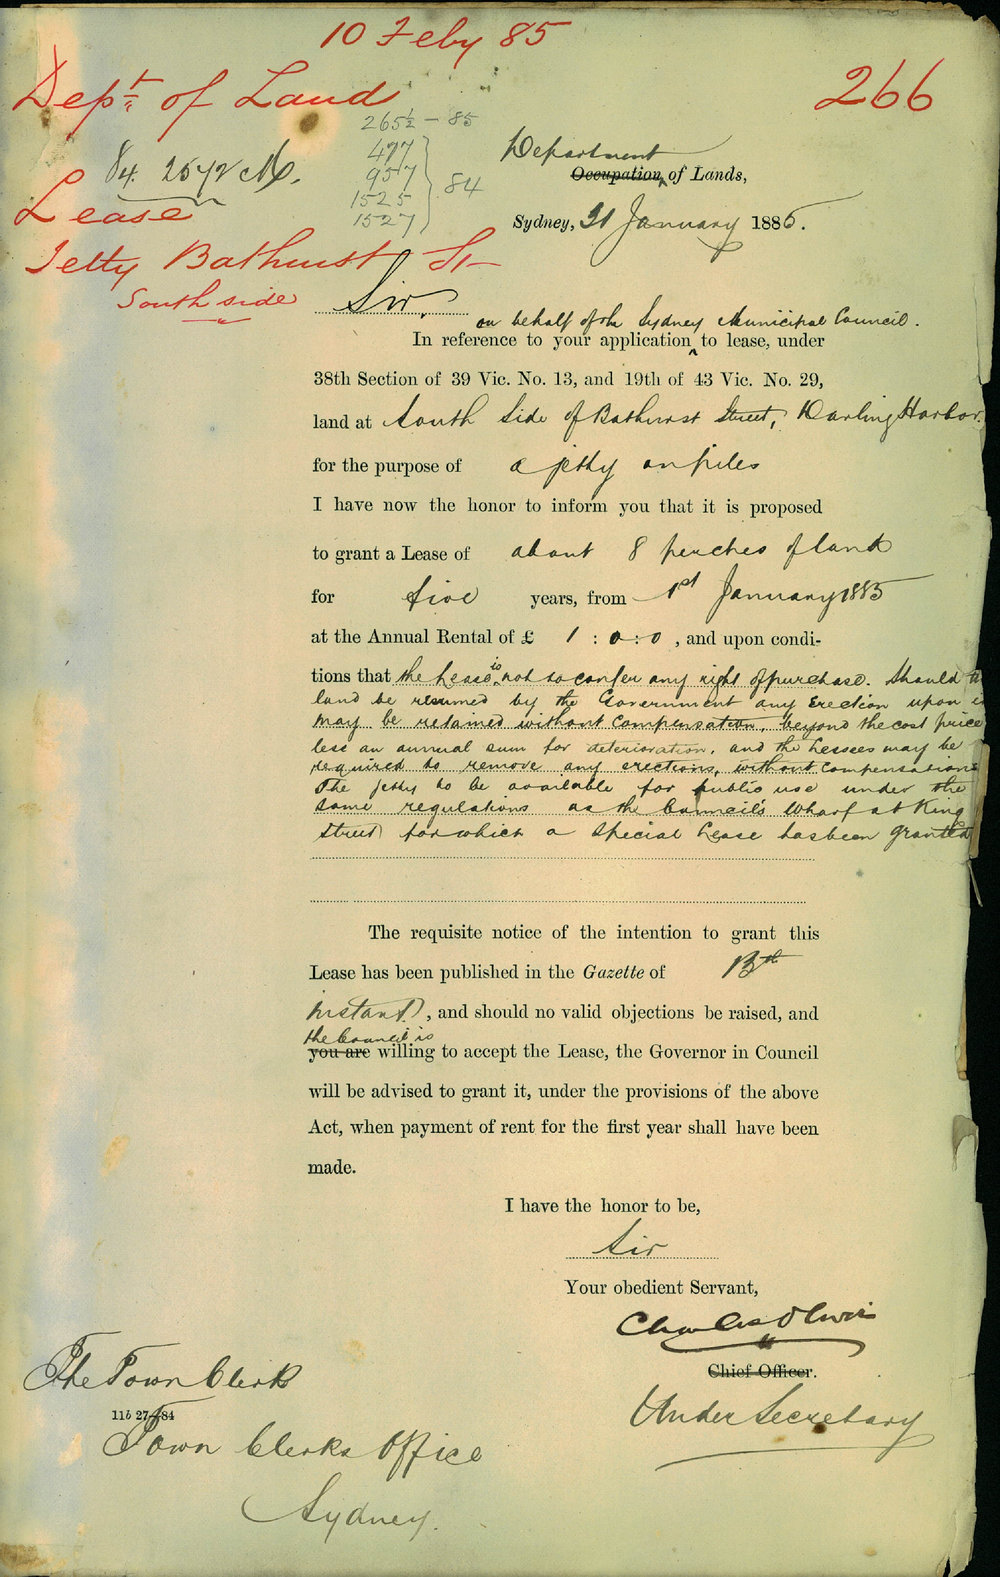 10 Feby 85
Dept of Land
266
265½ - 85
477
957
1525
1527
84
84. 2572 M.
Lease
Jetty Bathurst St
South side
Department
Occupation of Lands,
Sydney, 31 January 1885.
Sir,
on behalf of the Sydney Municipal Council.
In reference to your application to lease, under
38th Section of 39 Vic. No. 13, and 19th of 43 Vic. No. 29,
land at South Side of Bathurst Street, Darling Harbor.
for the purpose of a jetty on piles
I have now the honor to inform you that it is proposed
to grant a Lease of about 8 perches of land
for five years, from 1st January 1885
at the Annual Rental of £ 1 : 0 : 0 , and upon condi-
tions that the Lease is not to confer any right of purchase. Should the
land be resumed by the Government any Erection upon it
may be retained without compensation, beyond the cost price
less an annual sum for deterioration, and the Lessees may be
required to remove any erections, without compensation
The jetty to be available for public use under the
same regulations as the Council's Wharf at King
Street for which a Special Lease has been granted
The requisite notice of the intention to grant this
Lease has been published in the Gazette of 13th
instant, and should no valid objections be raised, and
the Council is
you are willing to accept the Lease, the Governor in Council
will be advised to grant it, under the provisions of the above
Act, when payment of rent for the first year shall have been
made.
I have the honor to be,
Sir
Your obedient Servant,
Charles Oliver
Chief Officer.
Under Secretary
The Town Clerk
11b 27-84
Town Clerks Office
Sydney.